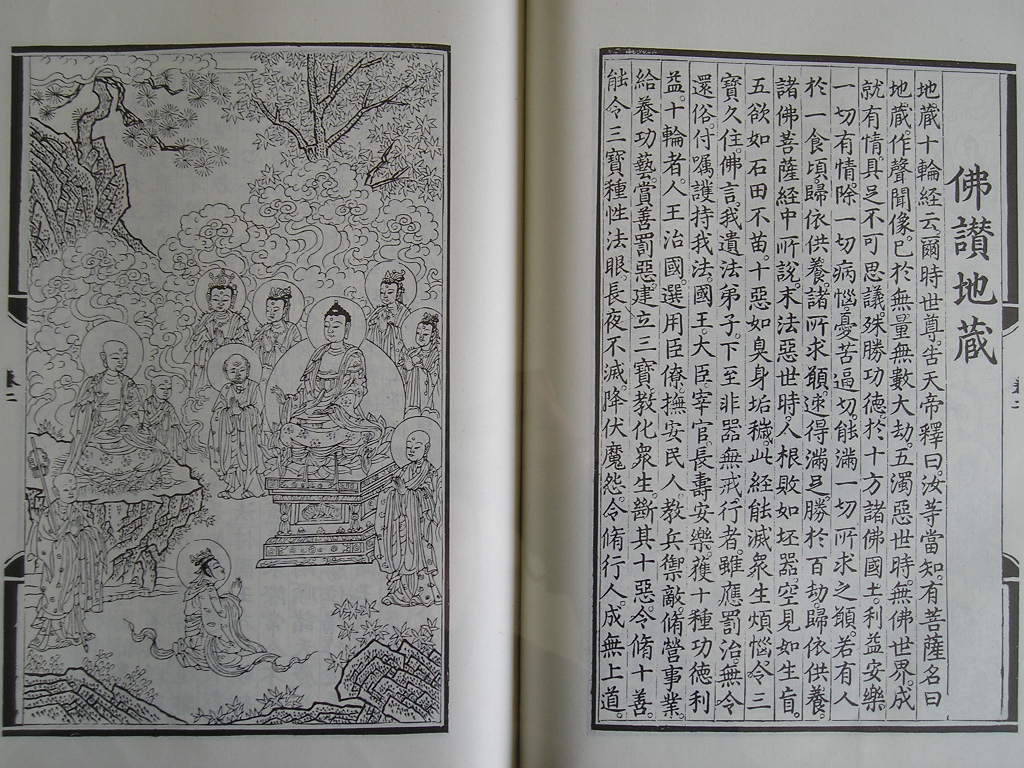 佛讃地蔵
地蔵十輪経云爾時世尊。告天帝釋曰。汝等當知。有菩薩名曰
地蔵。作聲聞像。已於無量無數大劫五濁惡世時。無佛世界。成
就有情。具足不可思議殊勝功德。於十方諸佛國土利益安樂
一切有情。除一切病惱。憂苦逼切能滿一切所求之願。若有人
於一食頃歸依供養。諸所求願。速得滿足。勝於百劫歸依供養。
諸佛菩薩経中所説。末法惡世時。人根敗如坯器。空見如生盲。
五欲如石田不苗。十惡如臭身垢穢。此経能滅衆生煩惱。令三
寶久住。佛言。我遺法弟子。下至非器無戒行者。雖應罰治。無令
還俗。付囑護持我法。國王。大臣。宰官。長壽安樂。獲十種功德利
益。十輪者。人王治國。選用臣僚。撫安民人。教兵禦敵。脩營事業。
給養功藝。賞善罰惡。建立三寶。教化衆生。斷其十惡。令脩十善。
能令三寶種性法眼長夜不滅。降伏魔怨。令脩行人。成無上道。
卷二